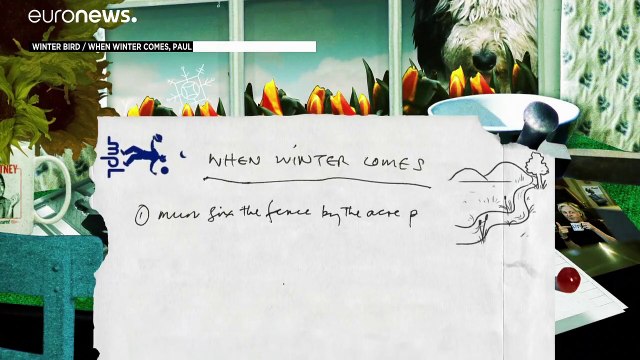 euronews.
WINTER BIRD / WHEN WINTER COMES, PAUL
TNEY
mpl
WHEN WINTER COMES
① must fix the fence by the acre p